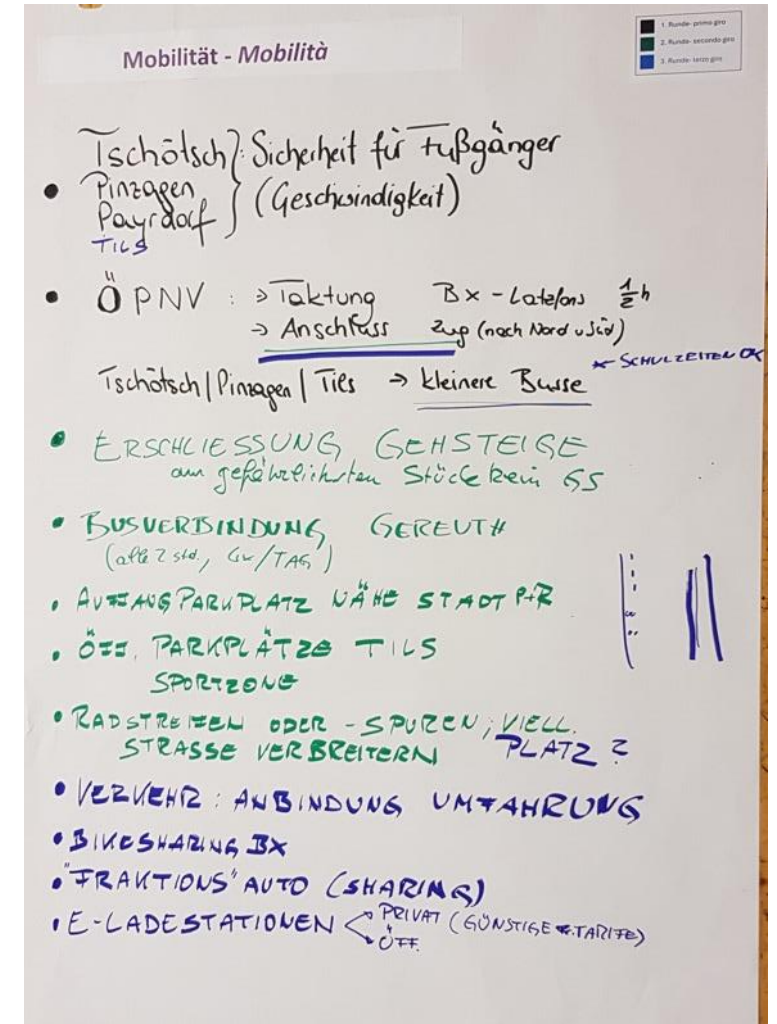 Mobilität - Mobilità
1. Runde- primo giro
2. Runde- secondo giro
3. Runde- terzo giro
Tschötsch }: Sicherheit für Fußgänger
• Pinzagen } (Geschwindigkeit)
Payrdorf
TILS
• ÖPNV : => Taktung Bx - Latzfons 1/2 h
=> Anschluss Zug (nach Nord u Süd)
* SCHULZEITEN OK
Tschötsch | Pinzagen | Tils → kleinere Busse
• ERSCHLIESSUNG GEHSTEIGE
am gefährlichsten Stück kein GS
• BUSVERBINDUNG GEREUTH
(alle 2 std., /TAG)
• AUFFANGPARKPLATZ NÄHE STADT P+R
• ÖFF. PARKPLÄTZE TILS
SPORTZONE
• RADSTREIFEN ODER -SPUREN; VIELL.
STRASSE VERBREITERN PLATZ?
• VERKEHR: ANBINDUNG UMFAHRUNG
• BIKESHARING BX
• "FRAKTIONS" AUTO (SHARING)
• E-LADESTATIONEN < PRIVAT (GÜNSTIGE TARIFE)
ÖFF.